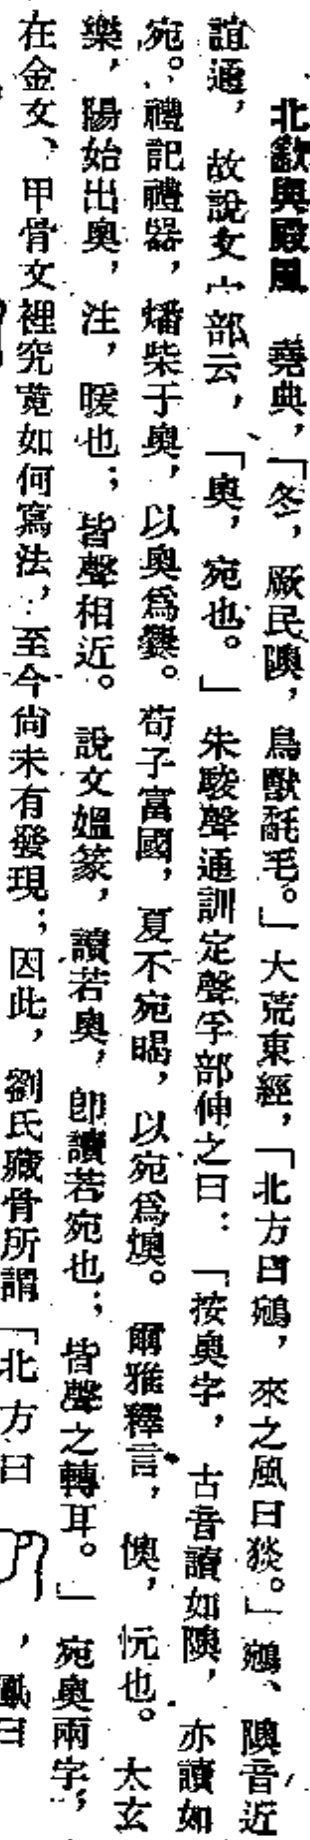 北㱃與殿風　堯典，「冬，厥民隩，鳥獸氄毛。」大荒東經，「北方曰鵷，來之風曰狻。」鵷、隩音近
誼通，故說文宀部云，「奧，宛也。」朱駿聲通訓定聲孚部伸之曰：「按奧字，古音讀如隩，亦讀如
宛。禮記禮器，燔柴于奧，以奧爲爨。荀子富國，夏不宛暍，以宛爲燠。爾雅釋言，懊，忨也。太玄
樂，陽始出奧，注，暖也；皆聲相近。說文媼篆，讀若奧，卽讀若宛也；皆聲之轉耳。」宛奧兩字，
在金文、甲骨文裡究竟如何寫法，至今尙未有發現；因此，劉氏藏骨所謂「北方曰　，鳳曰